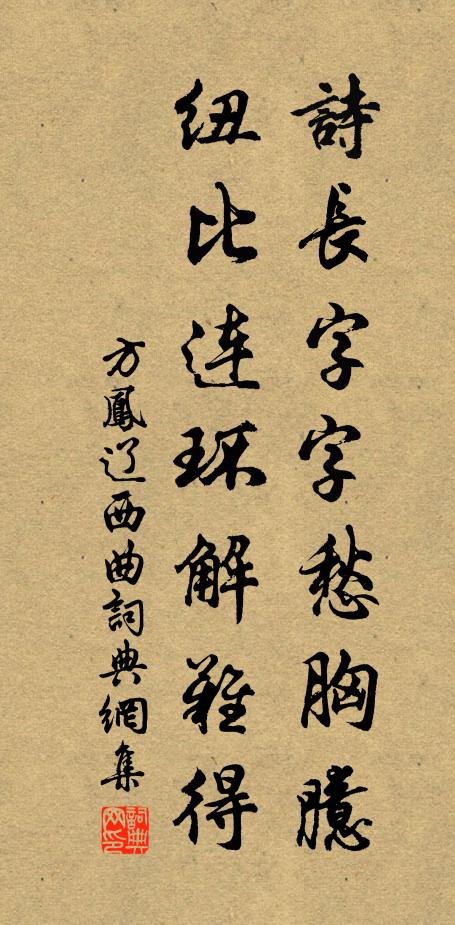 詩長字字愁胸臆
紐比连环解難得
方鳳辽西曲詞典網集
詞典网印